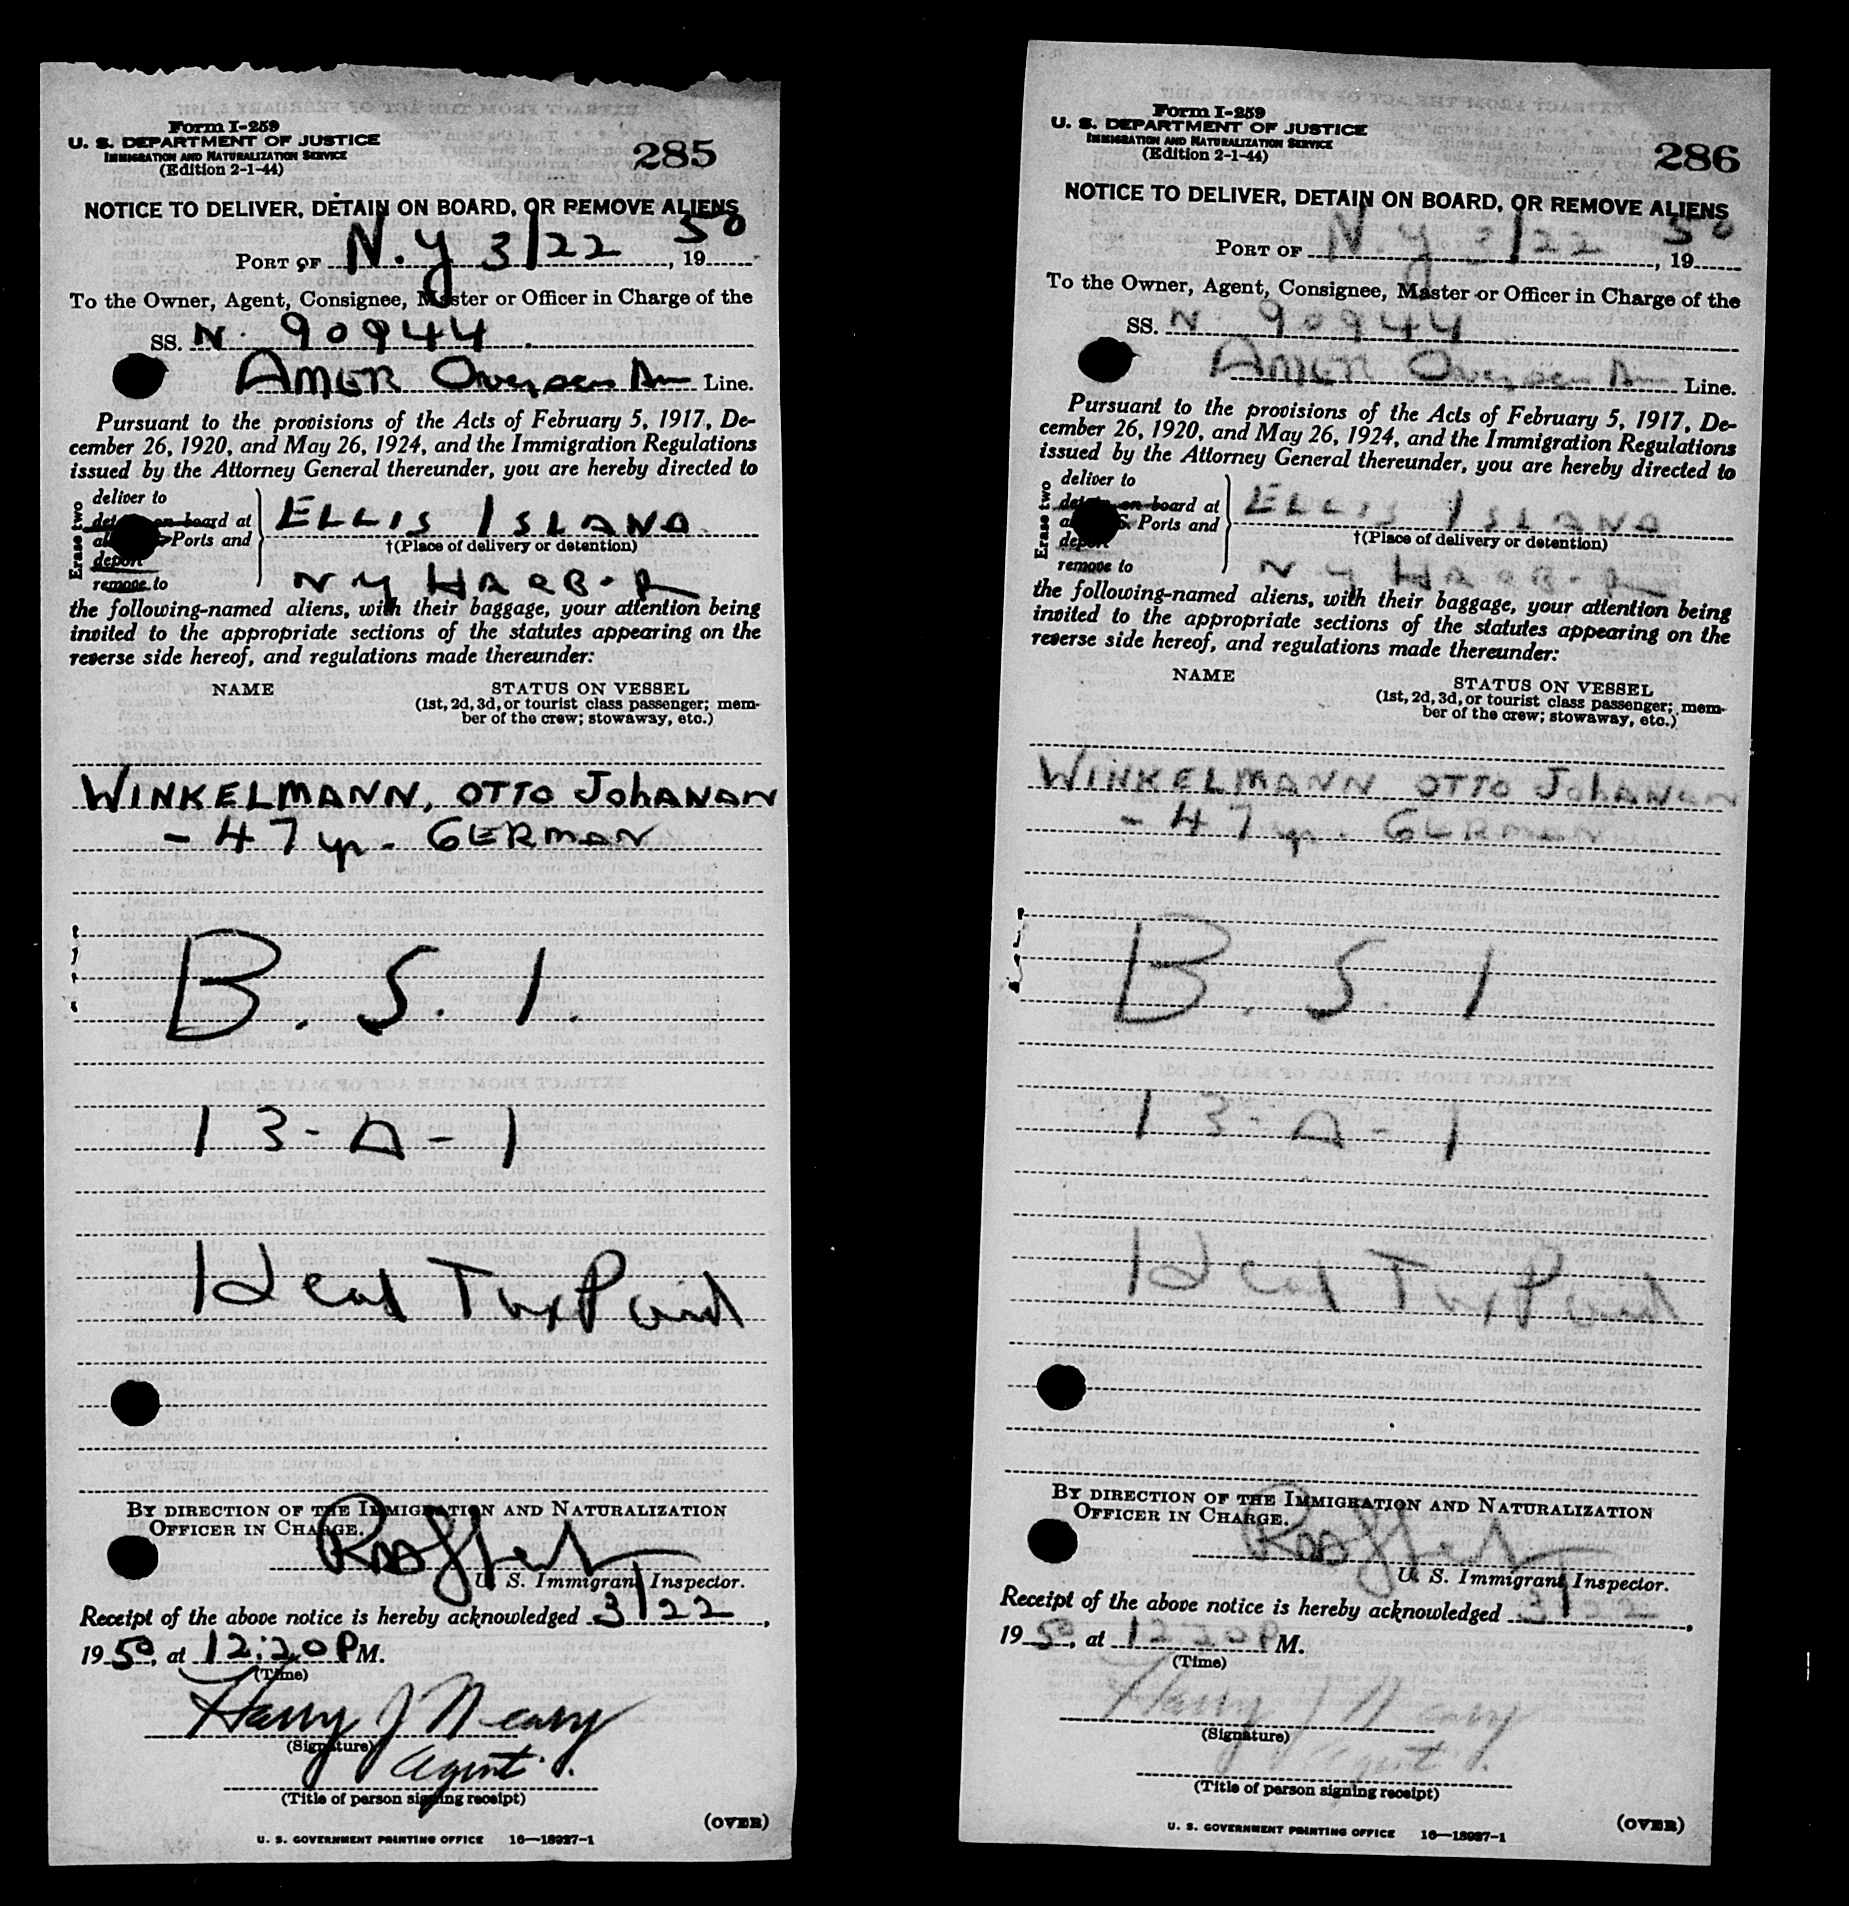 Form I-259
U. S. DEPARTMENT OF JUSTICE
IMMIGRATION AND NATURALIZATION SERVICE
(Edition 2-1-44)
285
NOTICE TO DELIVER, DETAIN ON BOARD, OR REMOVE ALIENS
PORT OF N.Y 3/22, 1950
To the Owner, Agent, Consignee, Master or Officer in Charge of the
SS. N. 90944
AMER Overseas Line.
Pursuant to the provisions of the Acts of February 5, 1917, De-
cember 26, 1920, and May 26, 1924, and the Immigration Regulations
issued by the Attorney General thereunder, you are hereby directed to
Erase two
deliver to
on board at
Ports and
deport
remove to
ELLIS ISLAND
†(Place of delivery or detention)
N Y HARB.
the following-named aliens, with their baggage, your attention being
invited to the appropriate sections of the statutes appearing on the
reverse side hereof, and regulations made thereunder:
NAME
STATUS ON VESSEL
(1st, 2d, 3d, or tourist class passenger; mem-
ber of the crew; stowaway, etc.)
WINKELMANN, OTTO JohANAN
- 47 yr - GERMAN
B. S. I.
13-A-1
Head Tax Paid
BY DIRECTION OF THE IMMIGRATION AND NATURALIZATION
OFFICER IN CHARGE.
U. S. Immigrant Inspector.
Receipt of the above notice is hereby acknowledged 3/22,
1950, at 12:20 PM.
(Time)
Harry J Neary
(Signature)
Agent.
(Title of person signing receipt)
(OVER)
U. S. GOVERNMENT PRINTING OFFICE 16—18987-1
Form I-259
U. S. DEPARTMENT OF JUSTICE
IMMIGRATION AND NATURALIZATION SERVICE
(Edition 2-1-44)
286
NOTICE TO DELIVER, DETAIN ON BOARD, OR REMOVE ALIENS
PORT OF N.Y 3/22, 1950
To the Owner, Agent, Consignee, Master or Officer in Charge of the
SS. N. 90944
AMER Overseas Line.
Pursuant to the provisions of the Acts of February 5, 1917, De-
cember 26, 1920, and May 26, 1924, and the Immigration Regulations
issued by the Attorney General thereunder, you are hereby directed to
Erase two
deliver to
on board at
S. Ports and
deport
remove to
ELLIS ISLAND
†(Place of delivery or detention)
N Y HARB.
the following-named aliens, with their baggage, your attention being
invited to the appropriate sections of the statutes appearing on the
reverse side hereof, and regulations made thereunder:
NAME
STATUS ON VESSEL
(1st, 2d, 3d, or tourist class passenger; mem-
ber of the crew; stowaway, etc.)
WINKELMANN OTTO JohANAN
- 47 yr - GERMAN
B. S. I
13-A-1
Head Tax Paid
BY DIRECTION OF THE IMMIGRATION AND NATURALIZATION
OFFICER IN CHARGE.
U. S. Immigrant Inspector.
Receipt of the above notice is hereby acknowledged 3/22,
1950, at 12 20 PM.
(Time)
Harry J Neary
(Signature)
Agent.
(Title of person signing receipt)
(OVER)
U. S. GOVERNMENT PRINTING OFFICE 16—18987-1